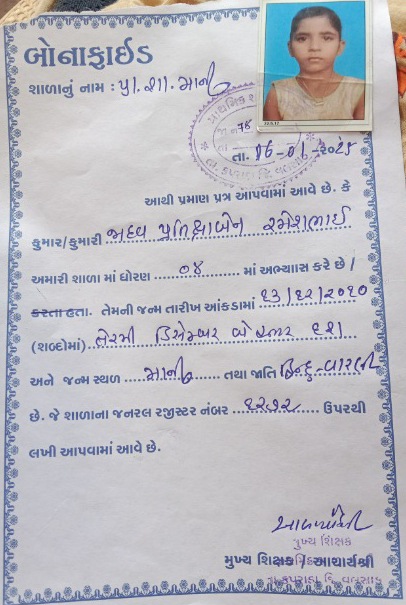 બોનાફાઈડ
શાળાનું નામ : પ્રા. શા. માની
તા. 06-01-૨૦૨૫
આથી પ્રમાણ પત્ર આપવામાં આવે છે. કે
કુમાર/કુમારી જાદવ પ્રતિક્ષાબેન રમેશભાઈ
અમારી શાળા માં ધોરણ ૦૪ માં અભ્યાસ કરે છે /
કરતા હતા. તેમની જન્મ તારીખ આંકડામાં ૧૩/૧૨/૨૦૧૦
(શબ્દોમાં) તેરમી ડિસેમ્બર બે હજાર દશ
અને જન્મ સ્થળ માની તથા જાતિ હિન્દુ-વારલી
છે. જે શાળાના જનરલ રજીસ્ટર નંબર ૧૨૭૨ ઉપરથી
લખી આપવામાં આવે છે.
મુખ્ય શિક્ષક
મુખ્ય શિક્ષક / આચાર્યશ્રી
તા. કપરાડા જિ. વલસાડ